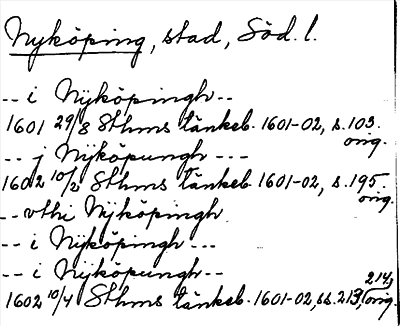 Nyköping, stad, Söd. l.
-- i Nÿköpingh --
1601 29/8 Sthms tänkeb. 1601-02, s. 103. orig.
-- j Nÿköpungh ---
1602 10/2 Sthms tänkeb. 1601-02, s. 195 orig.
-- vthi Nÿköpingh
-- i Nÿköpingh ---
-- i Nÿköpungh --
1602 10/4 Sthms tänkeb. 1601-02, ss. 213, 214, orig.